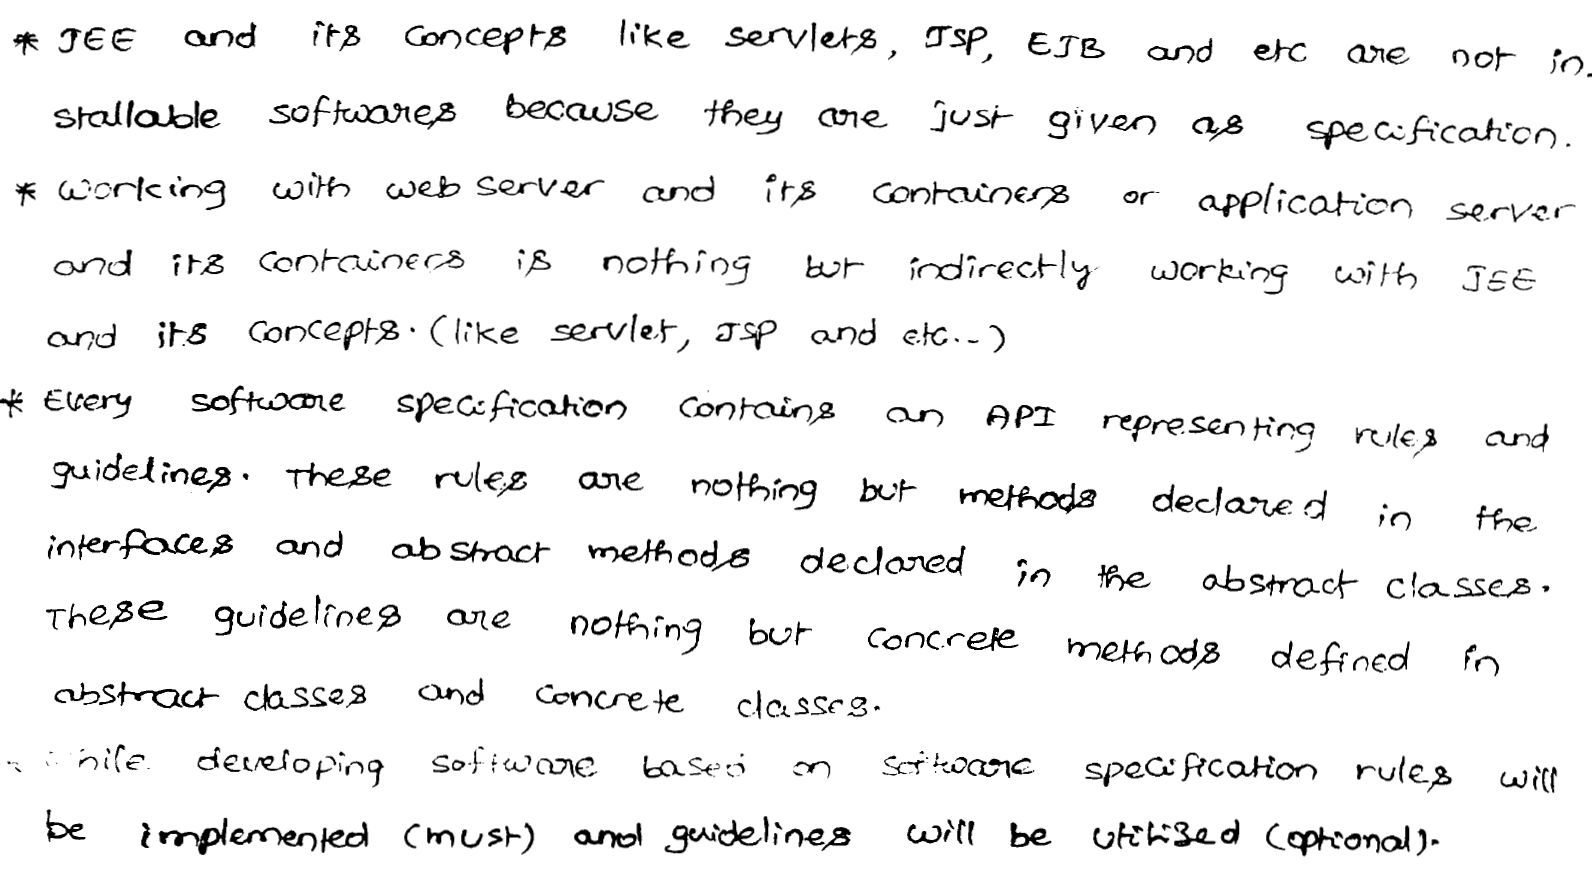 * JEE and its concepts like servlets, JSP, EJB and etc are not in-
stallable softwares because they are just given as specification.
* working with web server and its containers or application server
and its containers is nothing but indirectly working with JEE
and its concepts. (like servlet, JSP and etc...)
* Every software specification contains an API representing rules and
guidelines. These rules are nothing but methods declared in the
interfaces and abstract methods declared in the abstract classes.
These guidelines are nothing but concrete methods defined in
abstract classes and concrete classes.
* while developing software based on software specification rules will
be implemented (must) and guidelines will be utilised (optional).